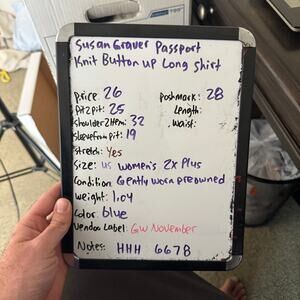 Susan Graver Passport
Knit Button up Long shirt
Price: 26 Poshmark: 28
Pit2pit: 25 Length:
Shoulder2Hem: 32 Waist:
Sleevefrompit: 19
Stretch: Yes
Size: US Women's 2X Plus
Condition: Gently worn preowned
Weight: 1.04
Color: blue
Vendoo Label: GW November
Notes: HHH 6678